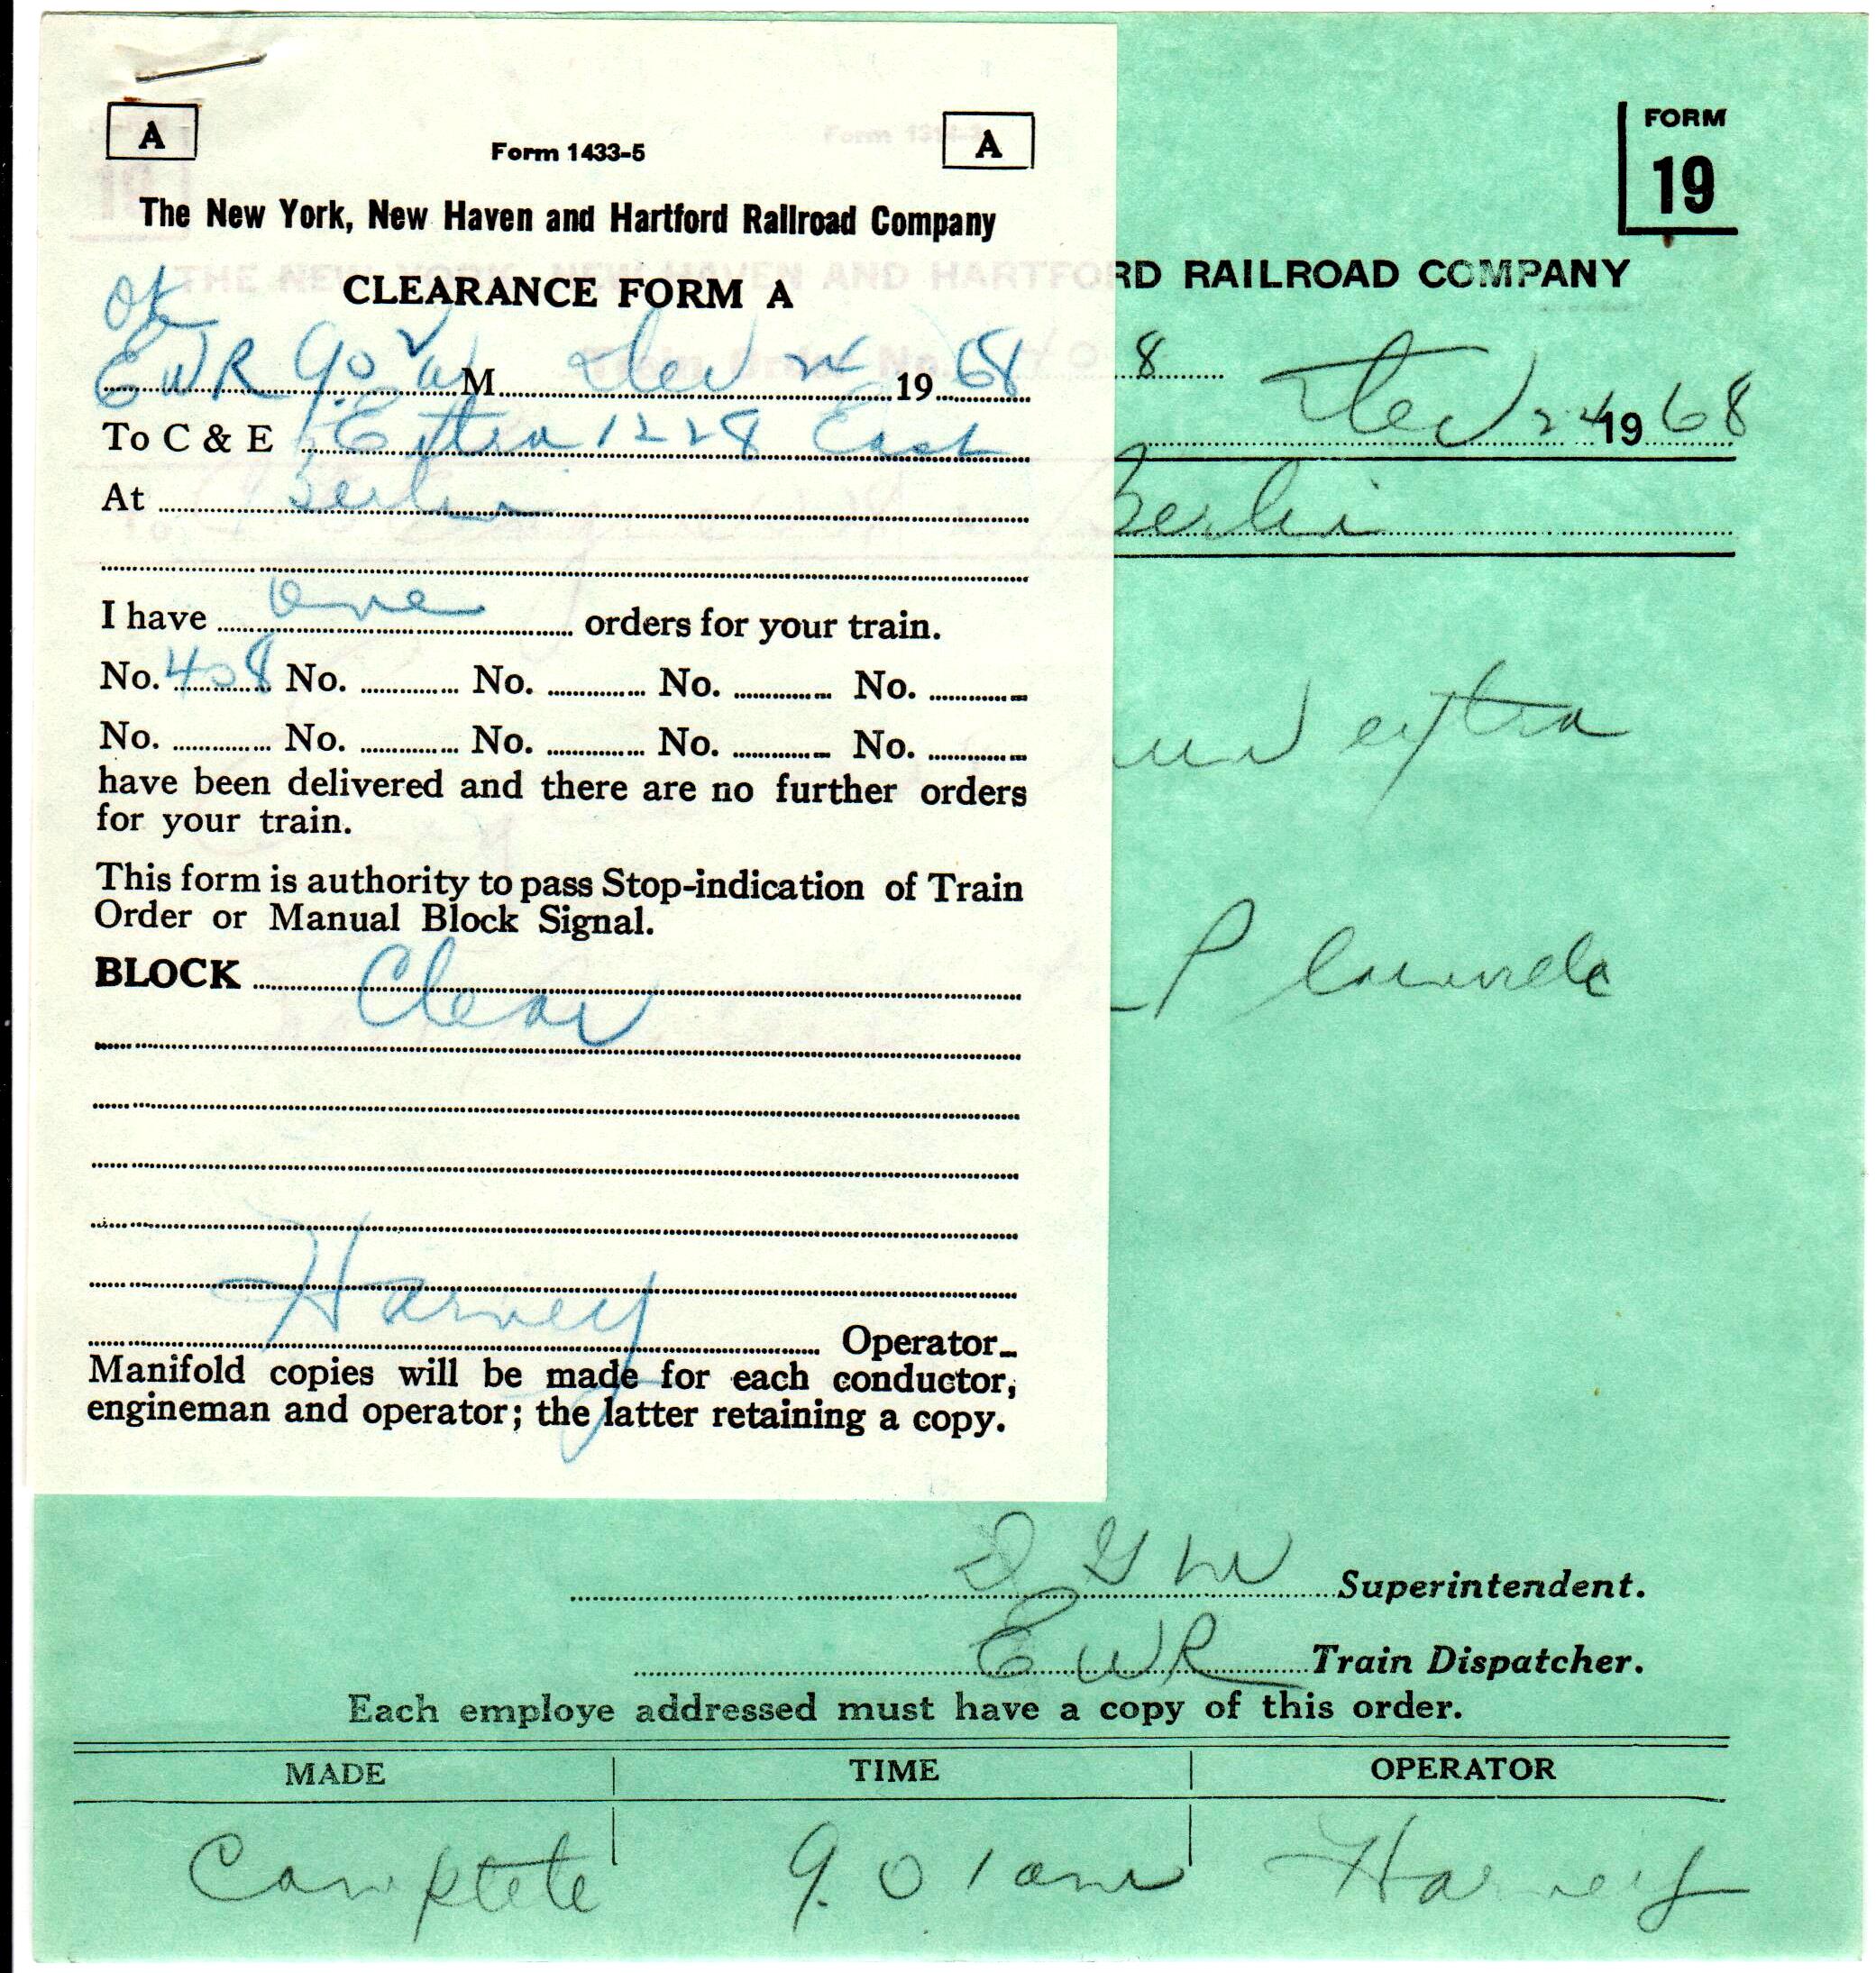 A Form 1433-5 A
The New York, New Haven and Hartford Railroad Company
CLEARANCE FORM A
OK
EWR 9.02 a M Dec 24 19 68
To C & E Extra 1228 East
At Berlin
I have One orders for your train.
No. 408 No. No. No. No.
No. No. No. No. No.
have been delivered and there are no further orders
for your train.
This form is authority to pass Stop-indication of Train
Order or Manual Block Signal.
BLOCK Clear
Harvey
Operator
Manifold copies will be made for each conductor,
engineman and operator; the latter retaining a copy.
FORM
19
RD RAILROAD COMPANY
8
Dec 24 19 68
Berlin
extra
P
Superintendent.
EWR Train Dispatcher.
Each employe addressed must have a copy of this order.
MADE TIME OPERATOR
Complete 9.01 am Harvey